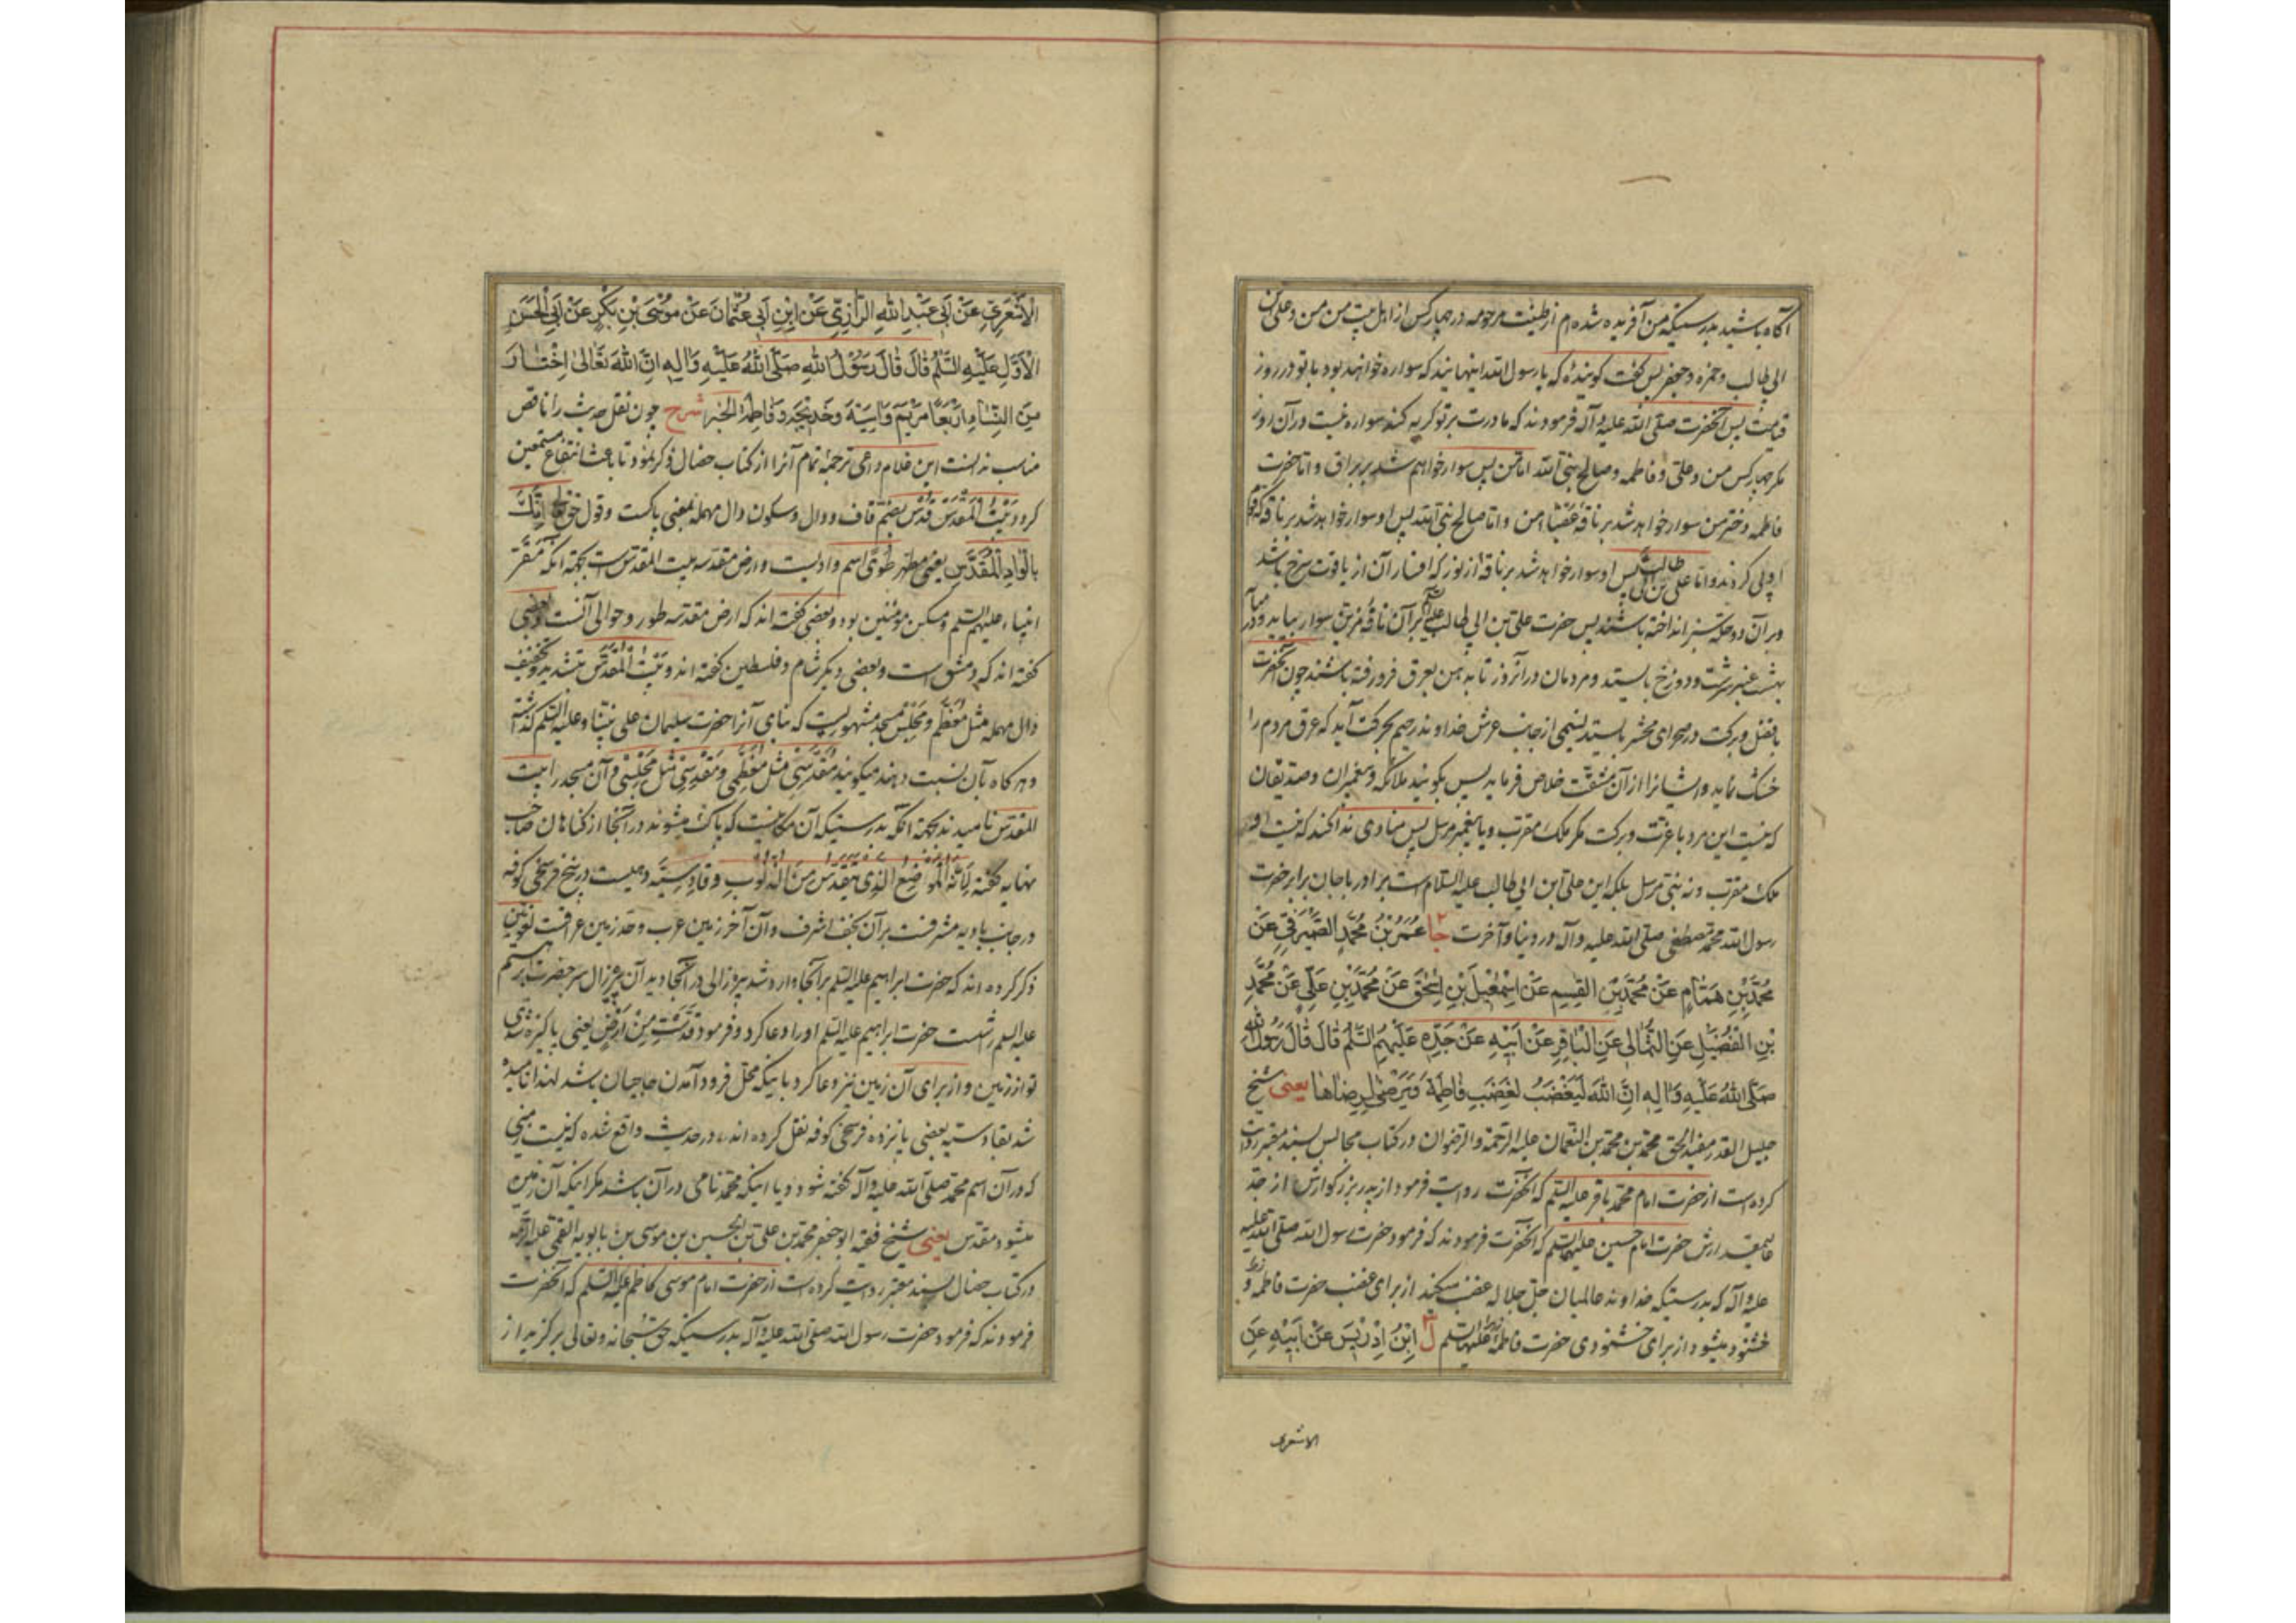 آکاه باشید بدرستیکه من آفریده شده‌ام از طینت مرحومه در چهار کس از اهل بیت من من و علی بن
ابی طالب و حمزه و جعفر پس کفت کوینده که یا رسول الله اینها نیند که سواره خواهند بود با تو در روز
قیامت پس آنحضرت صلی الله علیه و آله فرمودند که مادرت بر تو کریه کند سواره نیست در آن روز
مکر چهار کس من و علی و فاطمه و صالح نبی الله اما من پس سوار خواهم شد بر براق و اما حضرت
فاطمه دختر من سوار خواهد شد بر ناقه غضبا من و اما صالح نبی الله پس او سوار خواهد شد بر ناقه که
پی کردند و اما علی بن ابی طالب پس او سوار خواهد شد بر ناقه از نور که افسار آن از یاقوت سرخ باشد
و بر آن دو حله سبز انداخته باشند پس حضرت علی بن ابی طالب بر آن ناقه مزین سوار بیاید و در میان
بهشت عنبر سرشت و دوزخ بایستد و مردمان در آنروز تا بدهن بعرق فرو رفته باشند چون آنحضرت
با فضل و برکت در صحرای محشر بایستد نسیمی از جانب عرش خداوند رحیم بحرکت آید که عرق مردم را
خشک نماید و ایشانرا از آن مشقت خلاص فرماید پس بکویند ملائکه و پیغمبران و صدیقان
که نیست این مرد با عزت و برکت مکر ملک مقرب و یا پیغمبر مرسل پس منادی ندا کند که نیست او
ملک مقرب و نه نبی مرسل بلکه این علی ابن ابی طالب علیه السلام است برادر با جان برابر حضرت
رسول الله محمد مصطفی صلی الله علیه و آله در دنیا و آخرت جا عُمَرُ بْنُ مُحَمَّدٍ الصَّیْرَفِیُّ عَنْ
مُحَمَّدِ بْنِ هَمَّامٍ عَنْ مُحَمَّدِ بْنِ الْقٰسِمِ عَنْ اِسْمٰعِیلَ بْنِ اِسْحٰقَ عَنْ مُحَمَّدِ بْنِ عَلِیٍّ عَنْ مُحَمَّدِ
بْنِ الْفُضَیْلِ عَنِ الثُّمَالِیِّ عَنِ الْبَاقِرِ عَنْ اَبِیْهِ عَنْ جَدِّهِ عَلَیْهِمُ السَّلٰمُ قَالَ قَالَ رَسُوْلُ اللهِ
صَلَّی اللهُ عَلَیْهِ وَاٰلِهِ اِنَّ اللهَ لَیَغْضَبُ لِغَضَبِ فَاطِمَةَ وَیَرْضٰی لِرِضَاهَا یعنی شیخ
جلیل القدر مفید الحق محمد بن محمد بن النعمان علیه الرحمة و الرضوان در کتاب مجالس بسند معتبر روایت
کرده است از حضرت امام محمد باقر علیه السلم که آنحضرت روایت فرمود از پدر بزرکوارش از جد
عالیمقدارش حضرت امام حسین علیهما السلم که آنحضرت فرمودند که فرمود حضرت رسول الله صلی الله علیه
علیه و آله که بدرستیکه خداوند عالمیان جل جلاله غضب میکند از برای غضب حضرت فاطمه و
خشنود میشود از برای خشنودی حضرت فاطمه علیها السلم ل اِبْنُ اِدْرِیْسَ عَنْ اَبِیْهِ عَنِ
الاشعری
الْاَشْعَرِیِّ عَنْ اَبِیْ عَبْدِ اللهِ الرَّازِیِّ عَنْ ابْنِ اَبِیْ عُثْمَانَ عَنْ مُوْسَی بْنِ بَکْرٍ عَنْ اَبِی الْحَسَنِ
الْاَوَّلِ عَلَیْهِ السَّلٰمُ قَالَ قَالَ رَسُوْلُ اللهِ صَلَّی اللهُ عَلَیْهِ وَاٰلِهِ اِنَّ اللهَ تَعَالٰی اِخْتَارَ
مِنَ النِّسَاءِ اَرْبَعًا مَرْیَمَ وَاٰسِیَةَ وَخَدِیْجَةَ وَفَاطِمَةَ الخبر شرح چون نقل حدیث را ناقص
مناسب ندانست این غلام داعی ترجمه تمام آنرا از کتاب خصال ذکر نمود تا باعث انتفاع مستمعین
کردد بَیْتُ الْمَقْدِسْ قُدْس بضم قاف و دال و سکون دال مهمله بمعنی پاکست و قول حق تعالی اِنَّکَ
بِالْوَادِ الْمُقَدَّسِ یعنی مطهر طُوًی اسم وادیست و ارض مقدسه بیت المقدس است بجهة آنکه مَقَرّ
انبیاء علیهم السلم و مسکن مؤمنین بود و بعضی کفته‌اند که ارض مقدسه طور و حوالی آنست و بعضی
کفته‌اند که دمشق است و بعضی دیکر شام و فلسطین کفته‌اند و بَیْتُ الْمُقَدَّس بتشدید و تخفیف
دال مهمله مثل مُعَظَّم و مَجْلِس مسجد مشهوریست که بنای آنرا حضرت سلیمان علی نبینا و علیه السلم کذاشته
و هر کاه بآن نسبت دهند میکویند مُقَدَّسِیّ مثل مُعَظَّمِی و مَقْدِسِیّ مثل مَجْلِسِی و آن مسجد را بیت
المقدس نامیدند بجهة آنکه بدرستیکه آن مکانیست که پاک میشوند در آنجا از کناهان صاحب
نهایه کفته لِاَنَّهُ الْمَوْضِعُ الَّذِی یُتَقَدَّسُ مِنَ الذُّنُوبِ و قادسیّه دهیست در پنج فرسخی کوفه
در جانب بادیه مشرفست بر آن نجف اشرف و آن آخر زمین عرب و حد زمین عراقست لغویین
ذکر کرده‌اند که حضرت ابراهیم علیه السلم بر آنجا وارد شد پیره زالی در آنجا دید آن پیره زال سر حضرت ابراهیم
علیه السلم شست حضرت ابراهیم علیه السلم او را دعا کرد و فرمود قُدِّسْتِ مِنْ اَرْضٍ یعنی پاکیزه شوی
تو از زمین و از برای آن زمین نیز دعا کرد باینکه محل فرود آمدن حاجیان باشد لهذا نامیده
شد بقادسیه بعضی پانزده فرسخی کوفه نقل کرده‌اند، در حدیث واقع شده که نیست زمینی
که در آن اسم محمد صلی الله علیه و آله کفته شود و یا اینکه محمد نامی در آن باشد مکر اینکه آن زمین
میشود مقدس یعنی شیخ فقیه ابو جعفر محمد بن علی بن الحسین بن موسی بن بابویه القمی علیه الرحمه
در کتاب خصال بسند معتبر روایت کرده است از حضرت امام موسی کاظم علیه السلم که آنحضرت
فرمودند که فرمود حضرت رسول الله صلی الله علیه و آله بدرستیکه حق سبحانه و تعالی برکزید از